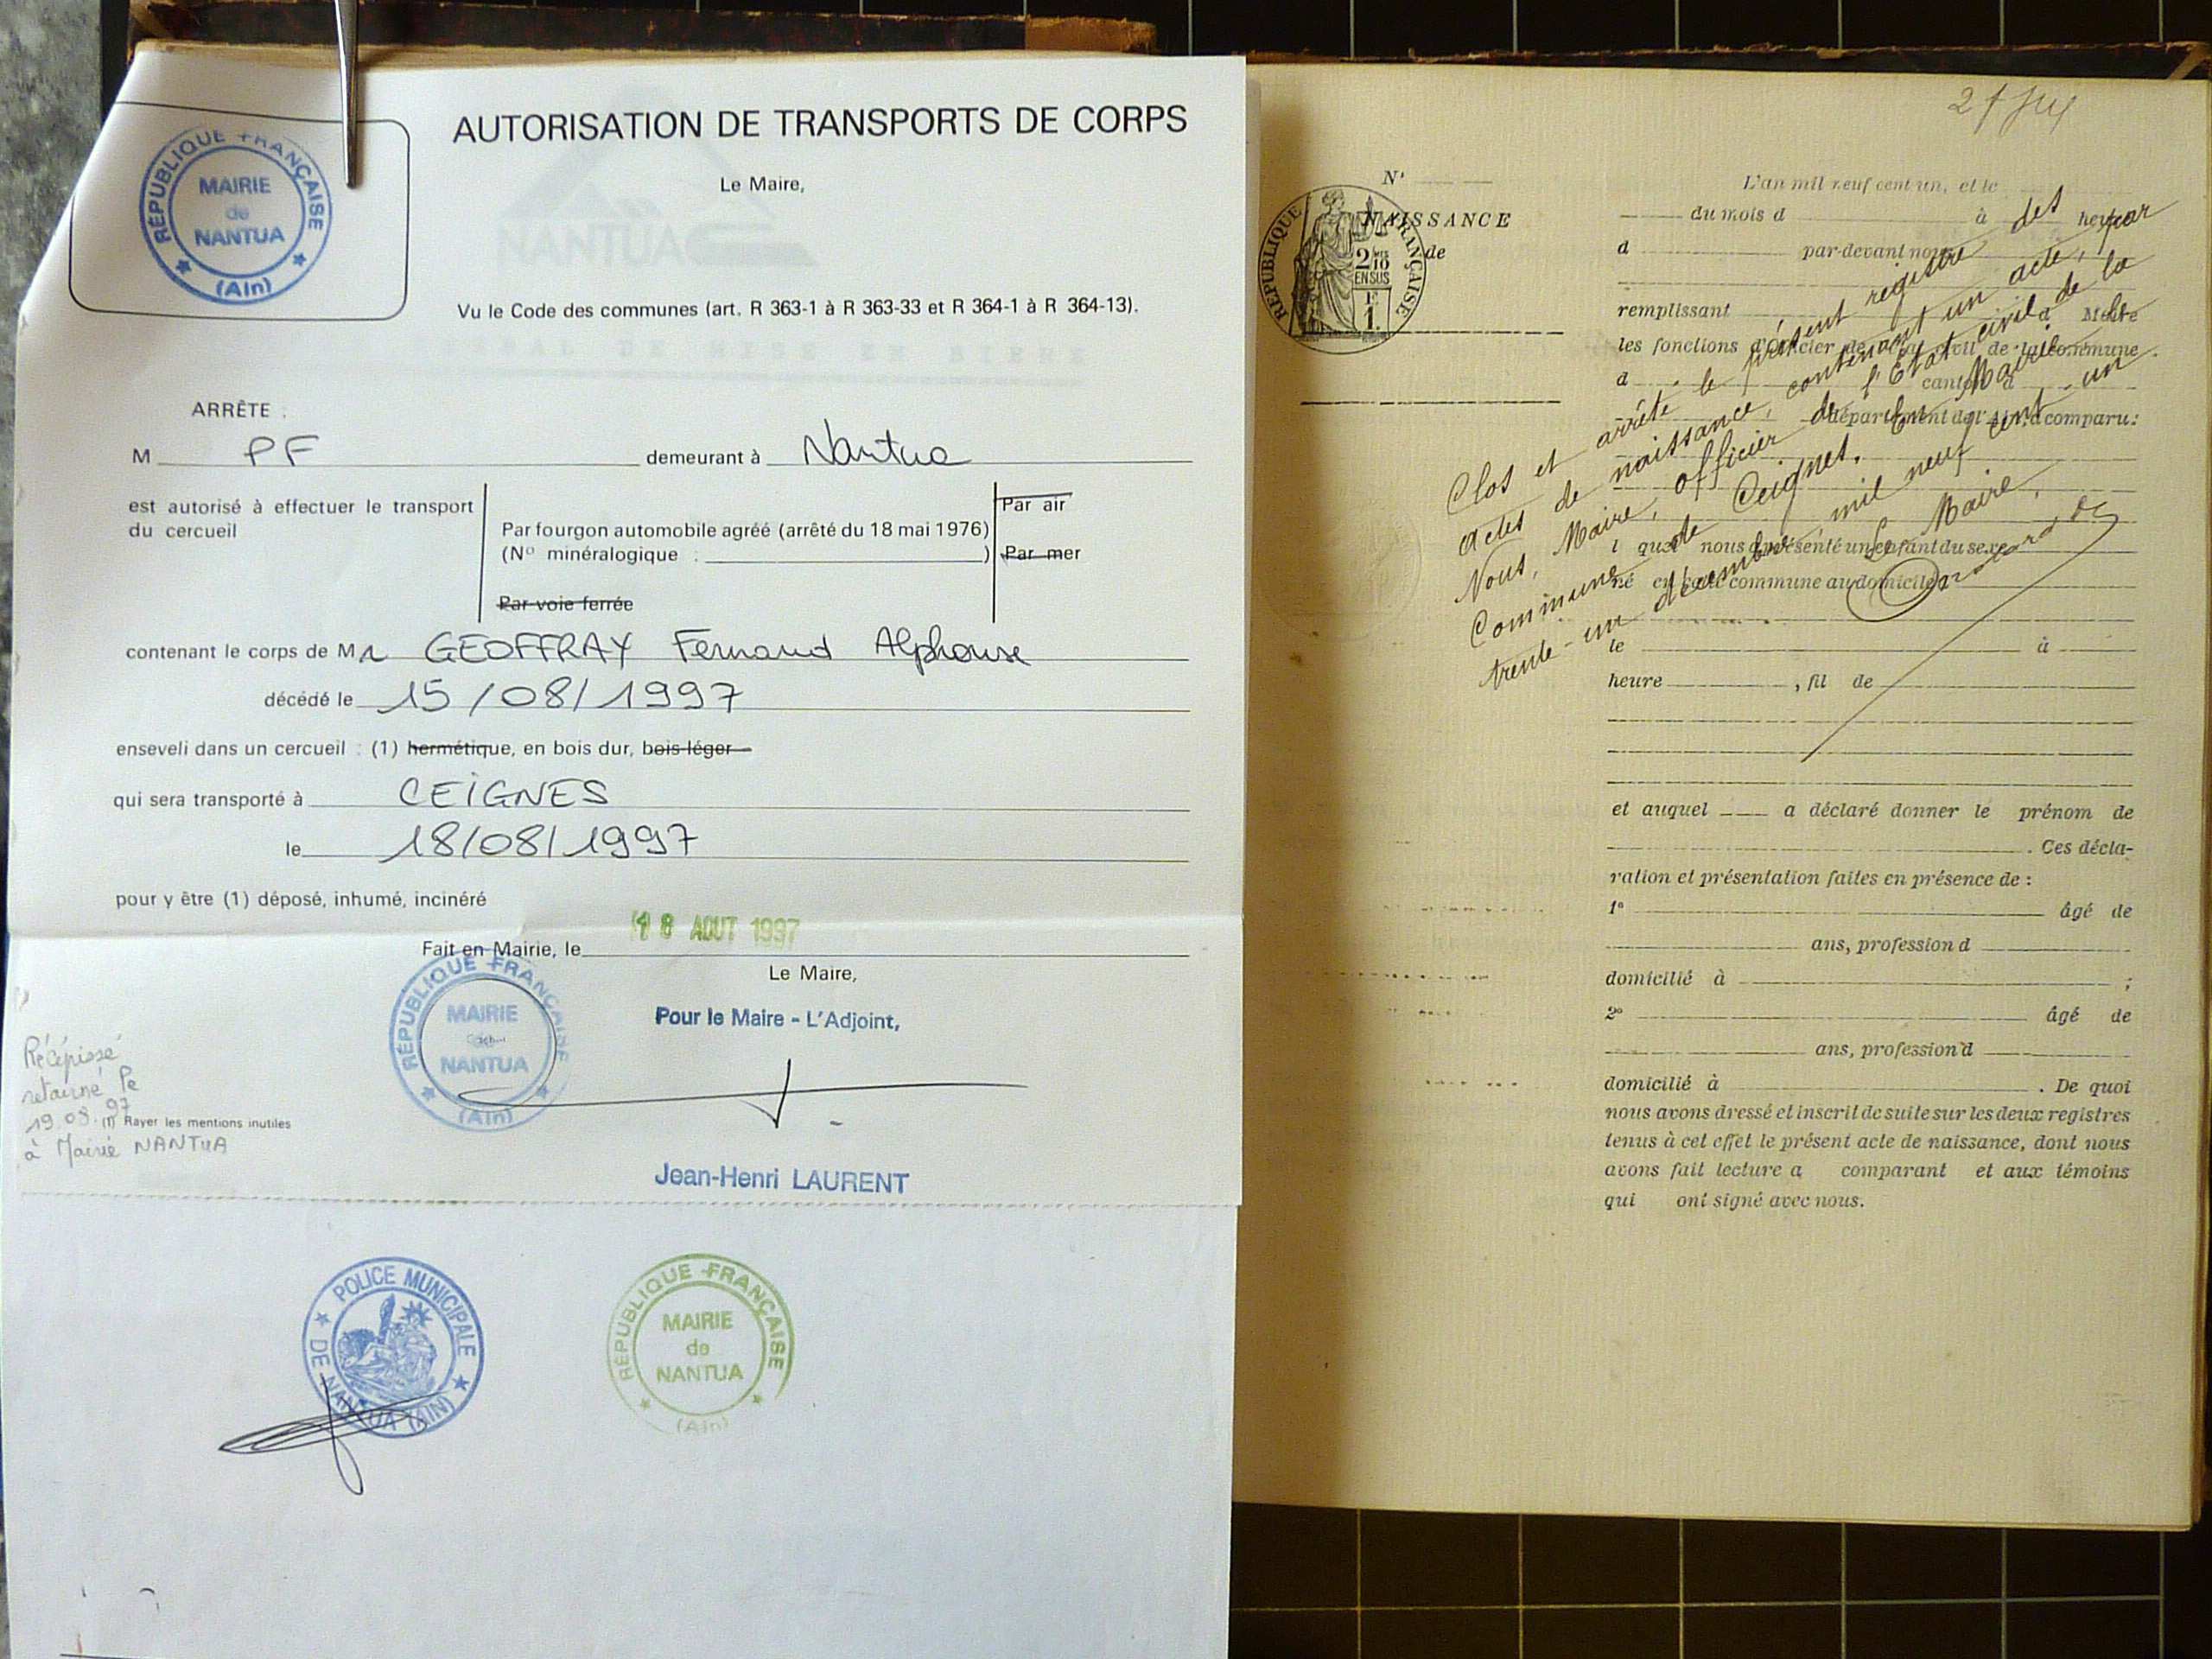 RÉPUBLIQUE FRANÇAISE
MAIRIE
de
NANTUA
(Ain)
AUTORISATION DE TRANSPORTS DE CORPS
Le Maire,
NANTUA
Vu le Code des communes (art. R 363-1 à R 363-33 et R 364-1 à R 364-13).
ARRÊTE :
M PF demeurant à Nantua
est autorisé à effectuer le transport
du cercueil
Par fourgon automobile agréé (arrêté du 18 mai 1976)
(N° minéralogique : )
Par voie ferrée
Par air
Par mer
contenant le corps de Mr GEOFFRAY Fernand Alphonse
décédé le 15/08/1997
enseveli dans un cercueil : (1) hermétique, en bois dur, bois léger
qui sera transporté à CEIGNES
le 18/08/1997
pour y être (1) déposé, inhumé, incinéré
Fait en Mairie, le 18 AOUT 1997
Le Maire,
RÉPUBLIQUE FRANÇAISE
MAIRIE
NANTUA
(Ain)
Pour le Maire - L'Adjoint,
Récépissé
retourné le
19.08.97
(1) Rayer les mentions inutiles
à Mairie NANTUA
Jean-Henri LAURENT
POLICE MUNICIPALE
DE NANTUA (AIN)
RÉPUBLIQUE FRANÇAISE
MAIRIE
de
NANTUA
(Ain)
N°
NAISSANCE
de
RÉPUBLIQUE FRANÇAISE
2/10
EN SUS
1
L'an mil neuf cent un, et le
du mois d à heure
d par-devant nous
remplissant à Maire
les fonctions d'officier de l'état civil de la commune
d canton d
département de l'Ain, a comparu :
l quel nous a présenté un enfant du sexe
né en cette commune au domicile
le à
heure , fil de
et auquel a déclaré donner le prénom de
. Ces décla-
ration et présentation faites en présence de :
1° âgé de
ans, profession d
domicilié à ;
2° âgé de
ans, profession d
domicilié à . De quoi
nous avons dressé et inscrit de suite sur les deux registres
tenus à cet effet le présent acte de naissance, dont nous
avons fait lecture a comparant et aux témoins
qui ont signé avec nous.
Clos et arrêté le présent registre des
actes de naissance, contenant un acte, par
Nous, Maire, officier de l'Etat civil de la
Commune de Ceignes. En Mairie le
trente-un décembre, mil neuf cent un
Le Maire,